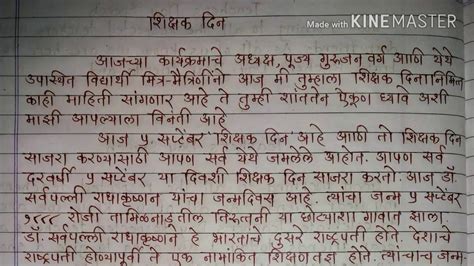 Made with KINEMASTER
शिक्षक दिन
आजच्या कार्यक्रमाचे अध्यक्ष, पूज्य गुरुजन वर्ग आणि येथे
उपस्थित विद्यार्थी मित्र-मैत्रिणींनो आज मी तुम्हाला शिक्षक दिनानिमित्त
काही माहिती सांगणार आहे ते तुम्ही शांततेन ऐकूण घ्यावे अशी
माझी आपल्याला विनंती आहे
आज ५ सप्टेंबर 'शिक्षक दिन' आहे आणि तो शिक्षक दिन
साजरा करण्यासाठी आपण सर्व येथे जमलेले आहोत. आपण सर्व
दरवर्षी ५ सप्टेंबर या दिवशी शिक्षक दिन साजरा करतो. आज डॉ.
सर्वपल्ली राधाकृष्णन यांचा जन्मदिवस आहे. त्यांचा जन्म ५ सप्टेंबर
१८८८ रोजी तामिळनाडूतील तिरूतनी या छोट्याशा गावात झाला.
डॉ. सर्वपल्ली राधाकृष्णन हे भारताचे दुसरे राष्ट्रपती होते. देशाचे
राष्ट्रपती होण्यापूर्वी ते एक नामांकित शिक्षणतज्ञ होते. त्यांचाच जन्म-